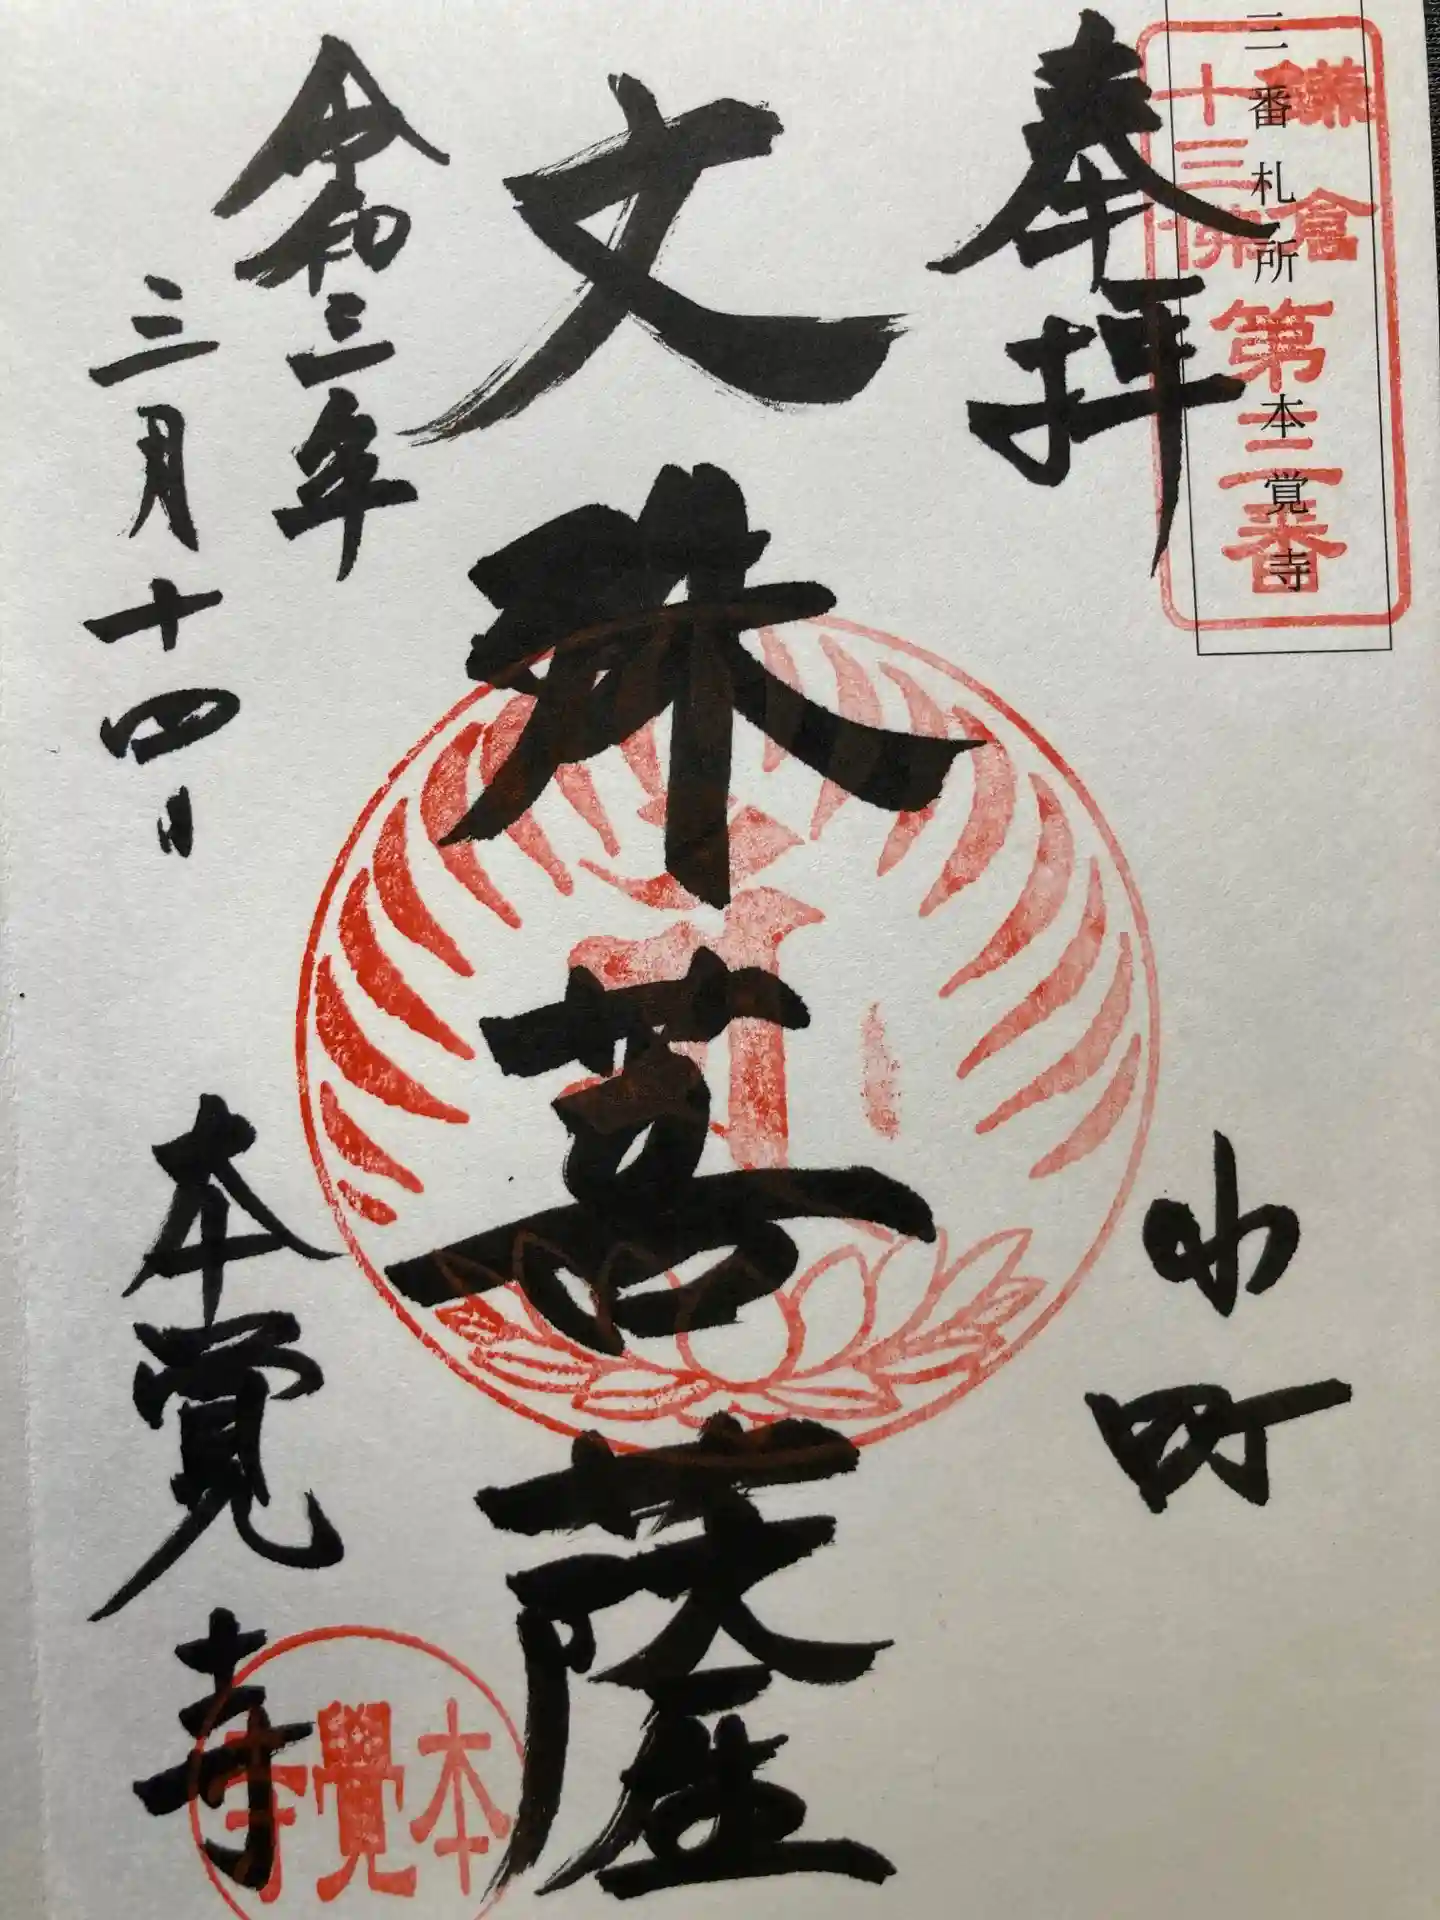 鎌倉
十三佛
第三番
三番札所 本覚寺
奉拝
小町
文殊菩薩
令和三年
三月十四日
本覚寺
本覺寺